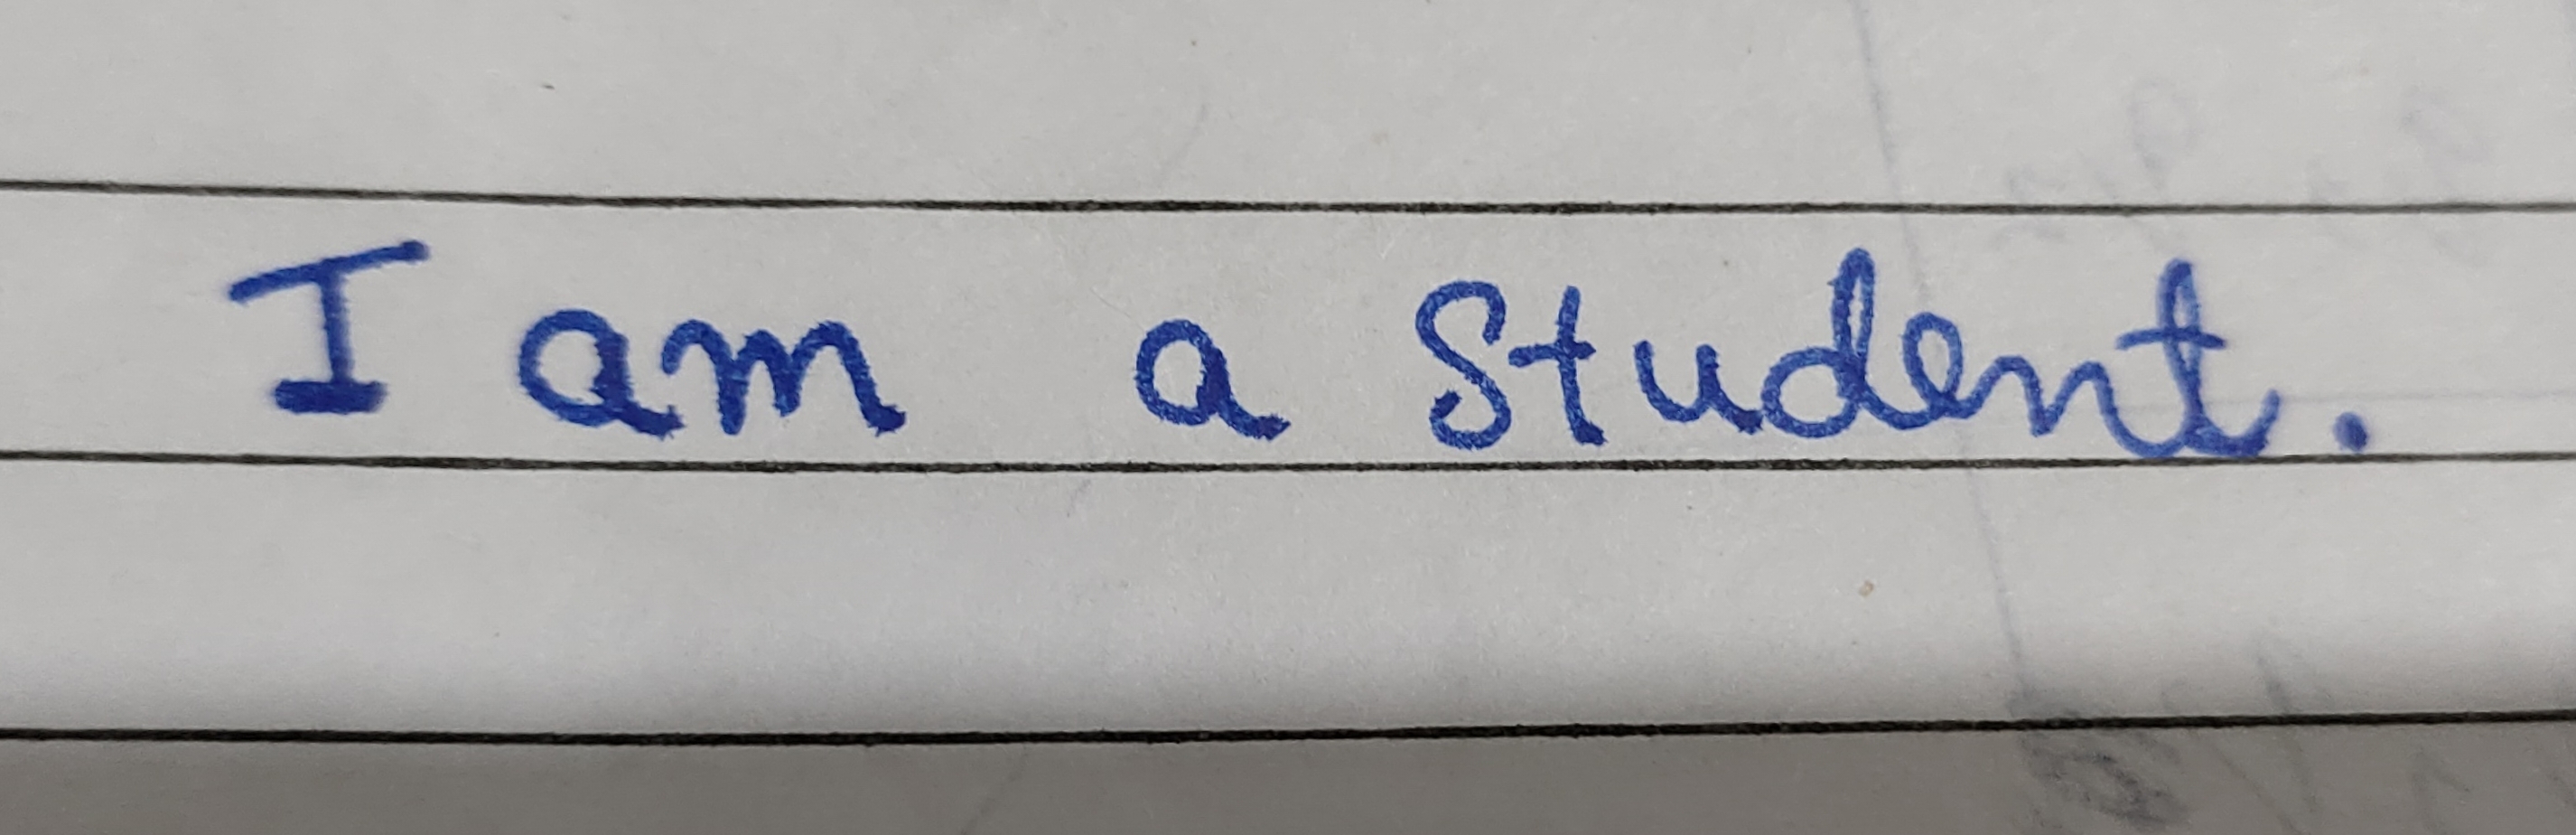 I am a student.